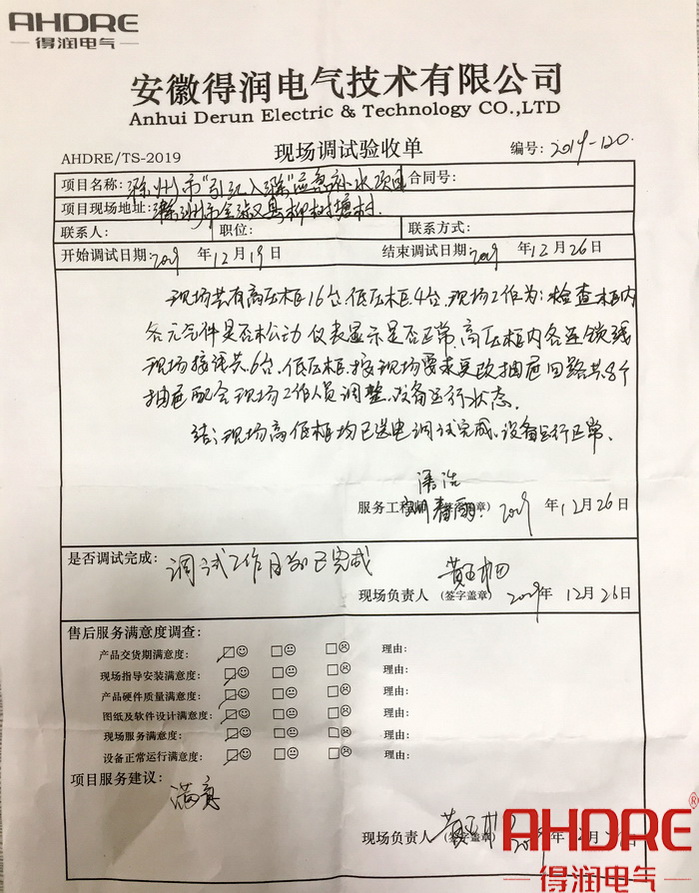 AHDRE
得润电气
安徽得润电气技术有限公司
Anhui Derun Electric & Technology CO.,LTD
AHDRE/TS-2019 现场调试验收单 编号:2019-120
项目名称:滁州市"引江入滁"应急补水项目 合同号:
项目现场地址:滁州市全椒县柳树塘村.
联系人: 职位: 联系方式:
开始调试日期:2019 年12月19日 结束调试日期:2019 年12月26日
现场共有高压柜16台,低压柜4台,现场工作为:检查柜内
各元气件是否松动 仪表显示是否正常,高压柜内各连锁线
现场接线共6台,低压柜,按现场要求更改抽屉回路共8个
抽屉配合现场工作人员调整,设备运行状态.
结:现场高低柜均已送电调试完成、设备运行正常.
服务工程师 (签字盖章) 2019 年12月26日
是否调试完成: 调试工作目前已完成
现场负责人 (签字盖章) 2019年 12月26日
售后服务满意度调查:
产品交货期满意度: 理由:
现场指导安装满意度: 理由:
产品硬件质量满意度: 理由:
图纸及软件设计满意度: 理由:
现场服务满意度: 理由:
设备正常运行满意度: 理由:
项目服务建议:
满意
现场负责人
AHDRE®
得润电气